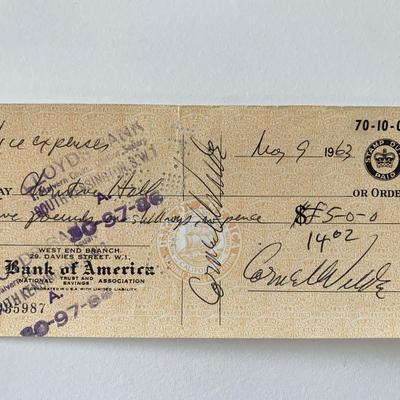 70-10-0
expenses
May 9 1963
STAMP DUTY
PAID
LLOYDS BANK
SOUTH KENSINGTON, S.W.7.
A.
30-97-86
AY
OR ORDE
pounds
shillings
pence
£5-0-0
1402
WEST END BRANCH
29, DAVIES STREET, W.1.
Bank of America
NATIONAL TRUST AND SAVINGS ASSOCIATION
INCORPORATED IN U.S.A. WITH LIMITED LIABILITY.
35987
A.
30-97-8
Cornel Wilde
Cornel Wilde